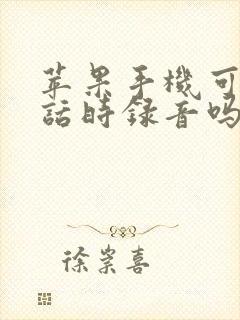 苹果手機可
話時録音吗
徐崇喜